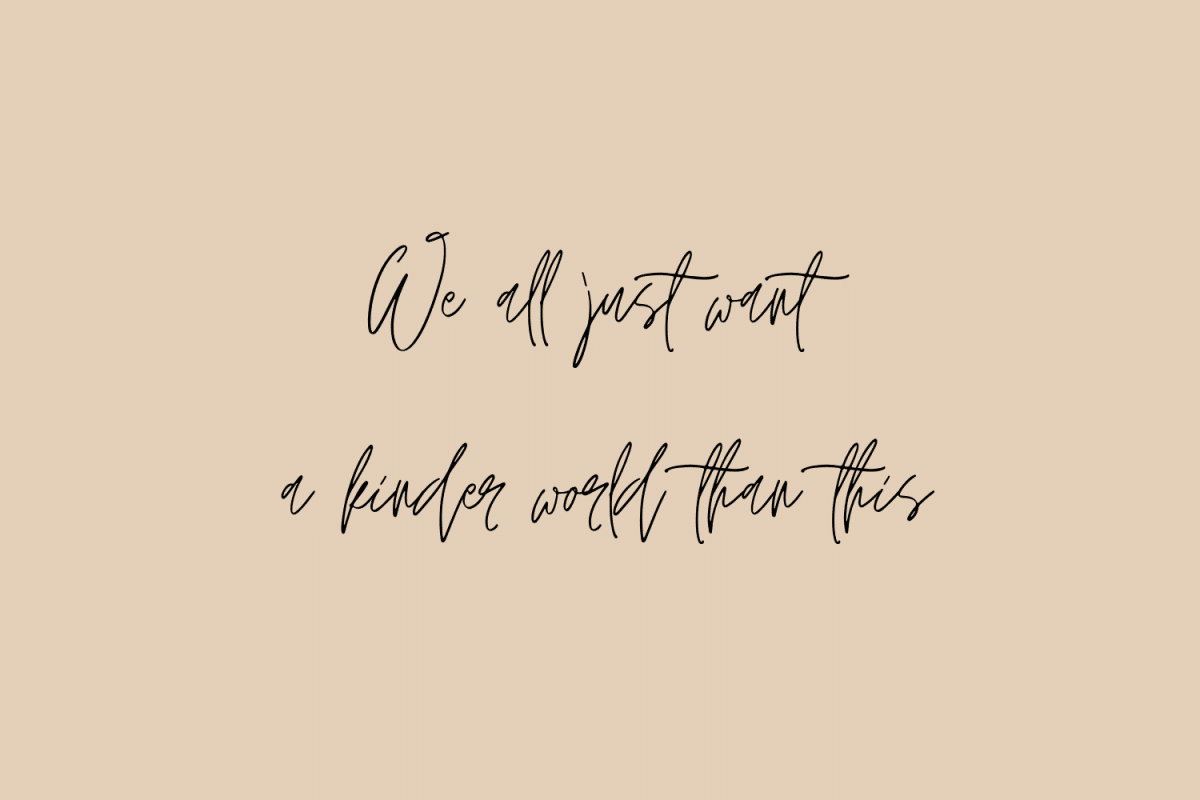 We all just want
a kinder world than this